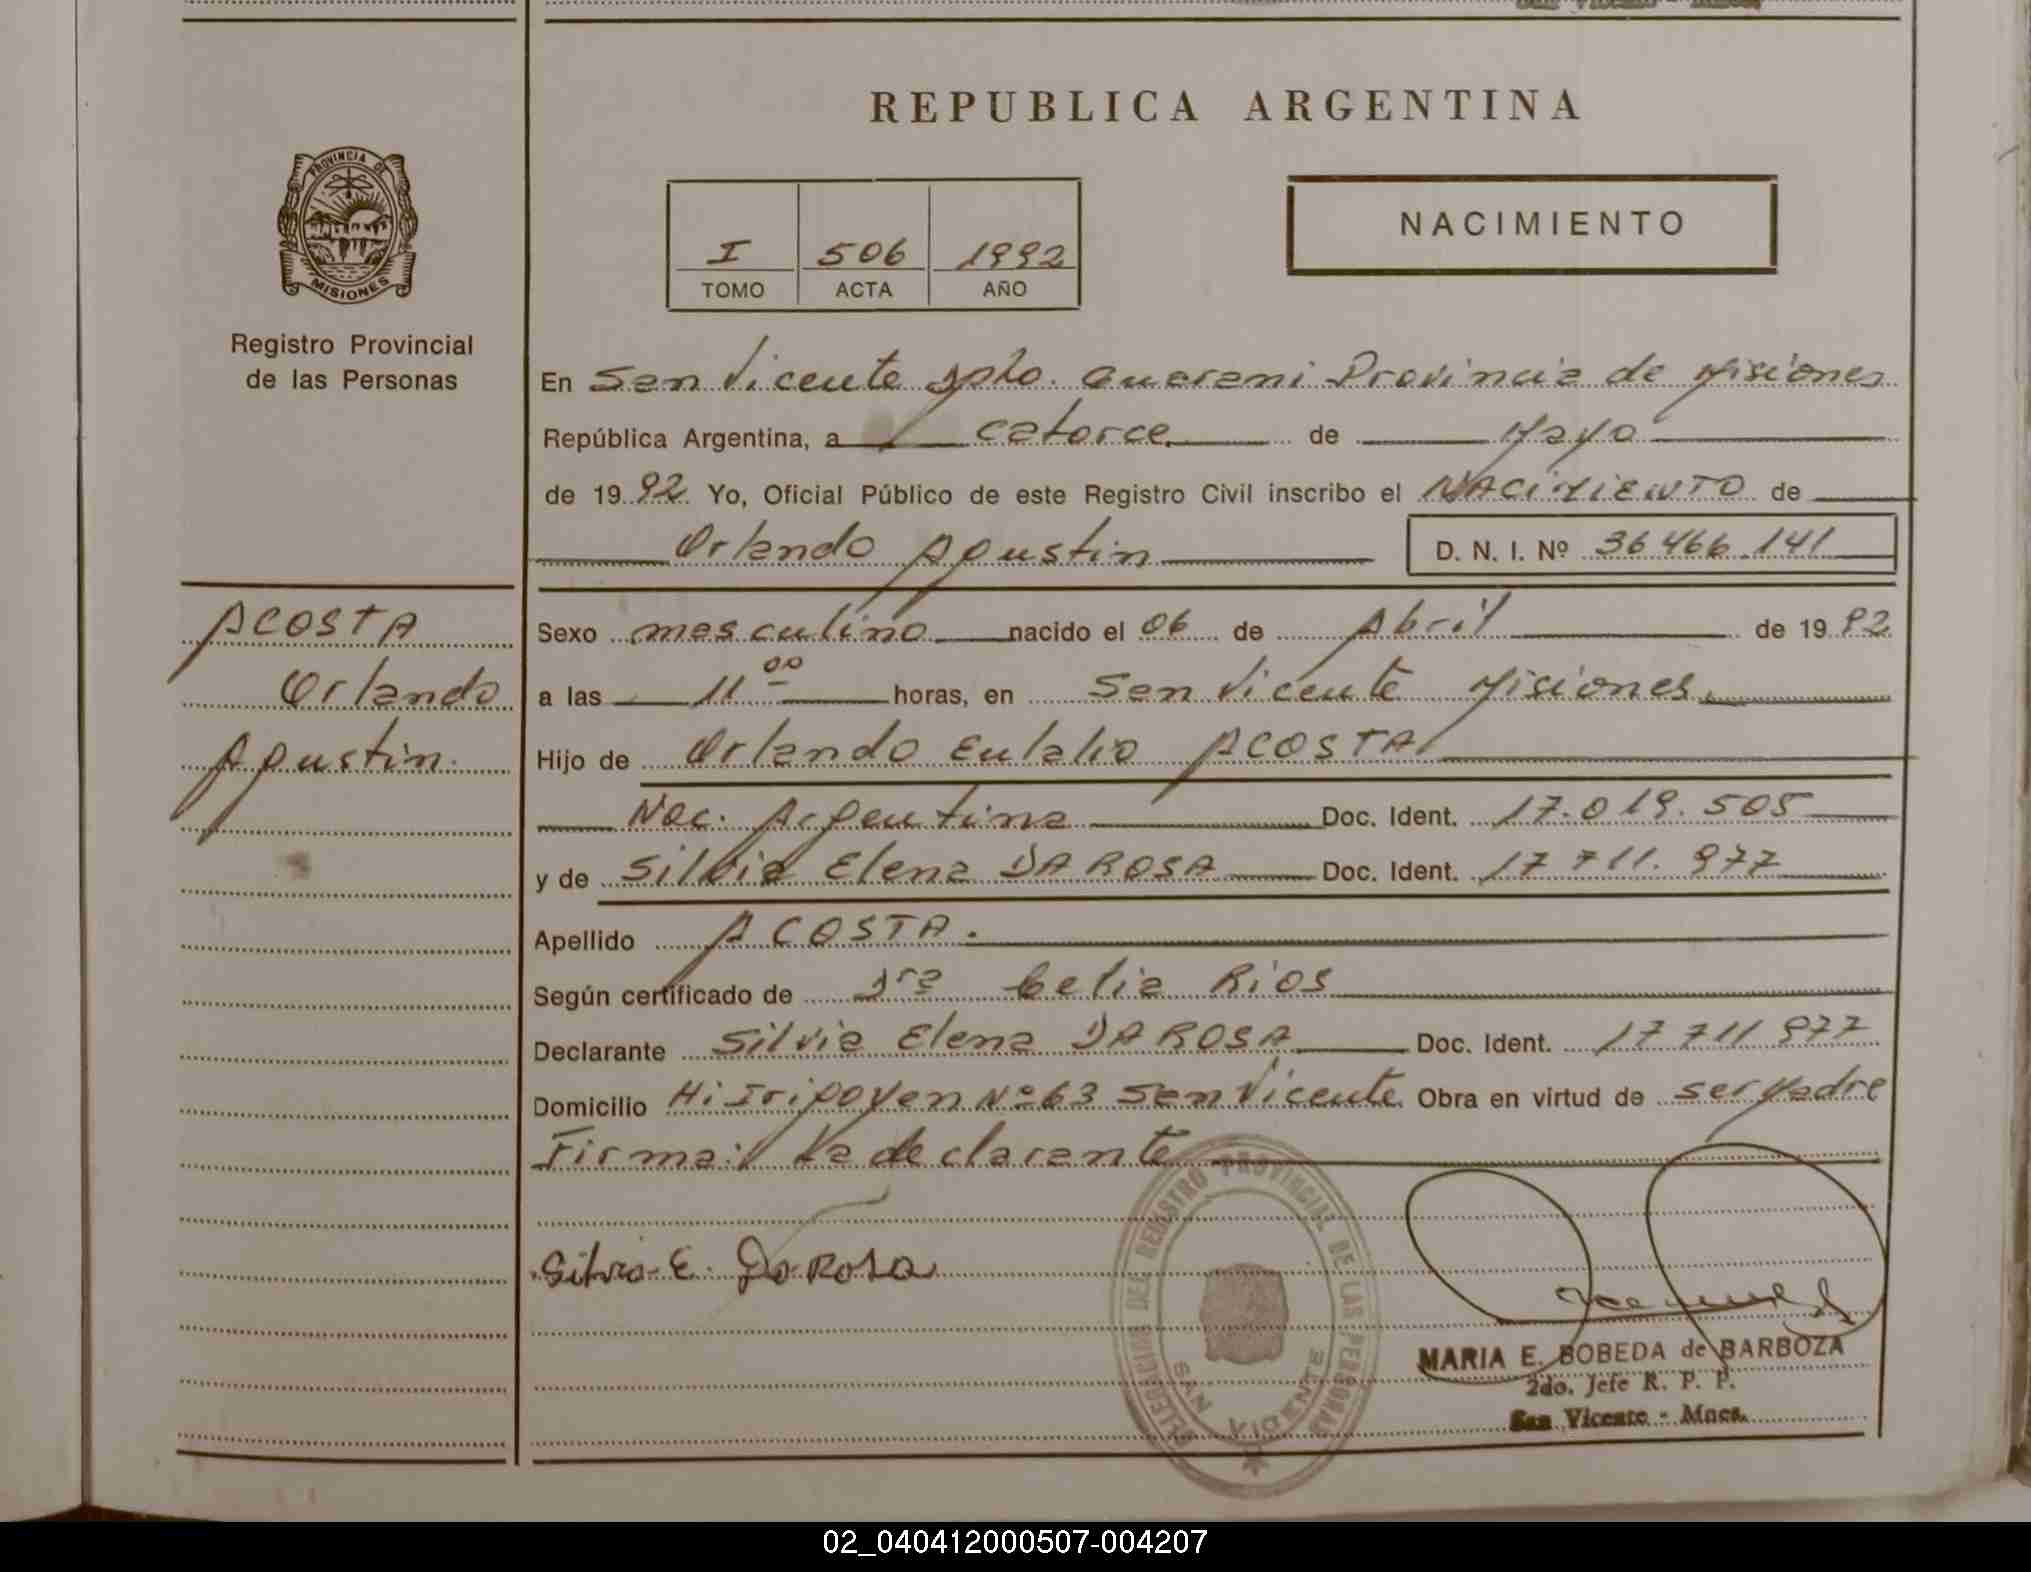 REPUBLICA ARGENTINA
PROVINCIA DE
MISIONES
Registro Provincial
de las Personas
I 506 1992
TOMO ACTA AÑO
NACIMIENTO
En San Vicente Dpto. Guarani Provincia de Misiones
República Argentina, a catorce de Mayo
de 1992 Yo, Oficial Público de este Registro Civil inscribo el NACIMIENTO de
Orlando Agustin D. N. I. Nº 36466.141
ACOSTA
Orlando
Agustin.
Sexo masculino nacido el 06 de Abril de 1992
a las 11 00 horas, en San Vicente Misiones.
Hijo de Orlando Eulalio ACOSTA
Nac. Argentina Doc. Ident. 17.019.505
y de Silvia Elena DA ROSA Doc. Ident. 17 711. 977
Apellido ACOSTA.
Según certificado de Dra Celia Rios
Declarante Silvia Elena DA ROSA Doc. Ident. 17 711 977
Domicilio Hi Iripoyen Nº 63 San Vicente Obra en virtud de ser Madre
Firma: La declarante
Silvia E. Da Rosa
DELEGACION DEL REGISTRO PROVINCIAL DE LAS PERSONAS
SAN VICENTE
MARIA E. BOBEDA de BARBOZA
2do. Jefe R. P. P.
San Vicente - Mnes.
02_040412000507-004207